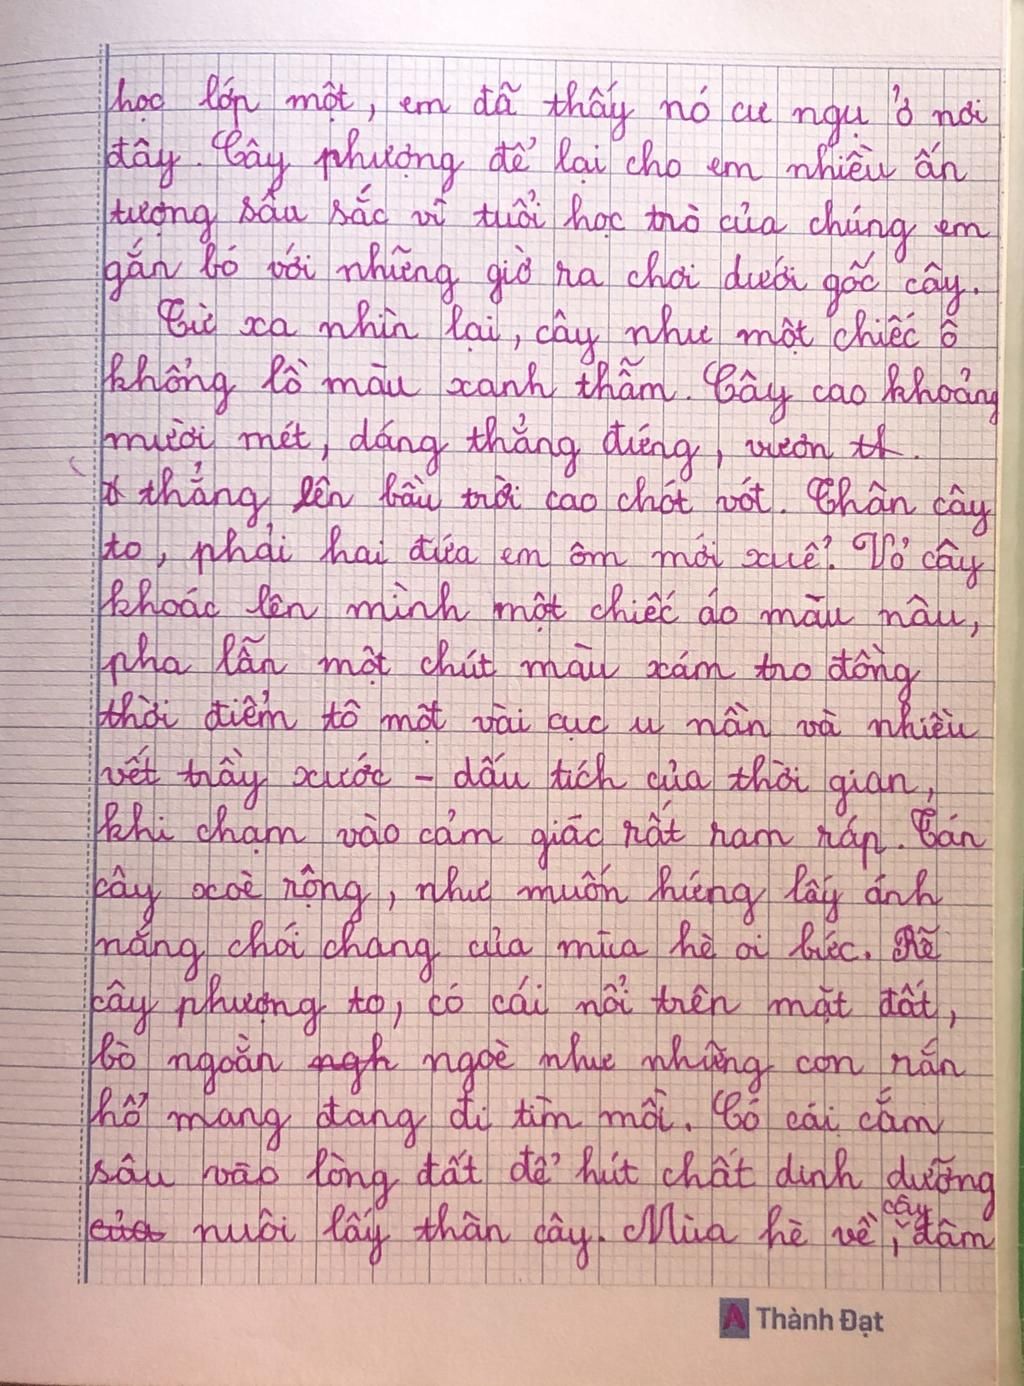 học lớp một, em đã thấy nó cư ngụ ở nơi
đây. Cây phượng để lại cho em nhiều ấn
tượng sâu sắc vì tuổi học trò của chúng em
gắn bó với những giờ ra chơi dưới gốc cây.
Từ xa nhìn lại, cây như một chiếc ô
khổng lồ màu xanh thẫm. Cây cao khoảng
mười mét, dáng thẳng đứng, vươn th.
thẳng lên bầu trời cao chót vót. Thân cây
to, phải hai đứa em ôm mới xuể. Vỏ cây
khoác lên mình một chiếc áo màu nâu,
pha lẫn một chút màu xám tro đồng
thời điểm tô một vài cục u nần và nhiều
vết trầy xước - dấu tích của thời gian,
khi chạm vào cảm giác rất ram ráp. Tán
cây xoè rộng, như muốn hứng lấy ánh
nắng chói chang của mùa hè oi bức. Rễ
cây phượng to, có cái nổi trên mặt đất,
bò ngoằn ngh ngoè như những con rắn
hổ mang đang đi tìm mồi. Có cái cắm
sâu vào lòng đất để hút chất dinh dưỡng
của nuôi lấy thân cây. Mùa hè về, cây đâm
Thành Đạt